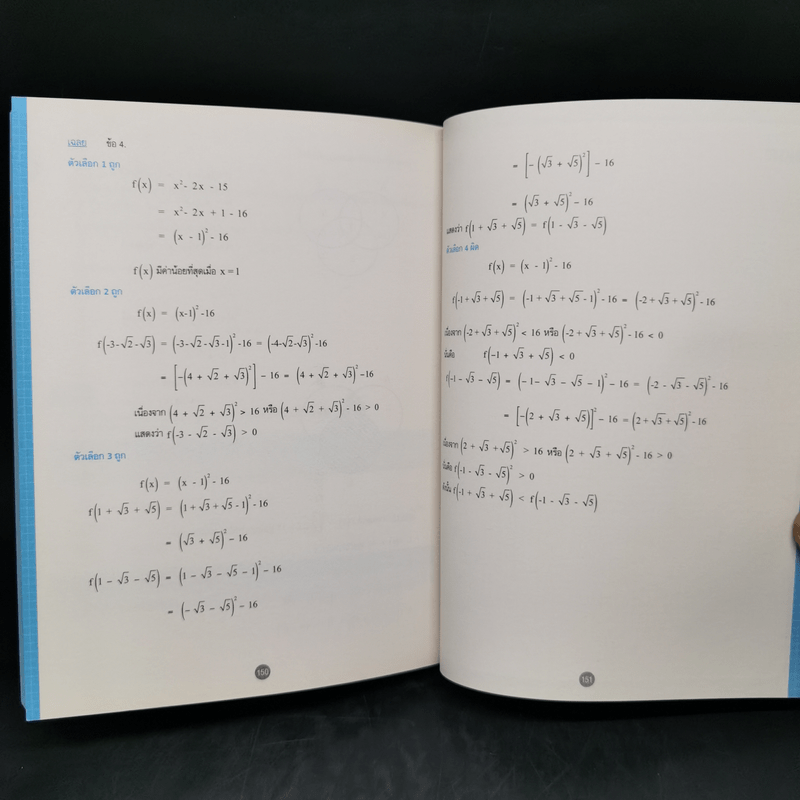 เฉลย ข้อ 4.
ตัวเลือก 1 ถูก
f(x) = x² - 2x - 15
= x² - 2x + 1 - 16
= (x - 1)² - 16
f(x) มีค่าน้อยที่สุดเมื่อ x = 1
ตัวเลือก 2 ถูก
f(x) = (x-1)² -16
f(-3-√2-√3) = (-3-√2-√3-1)² -16 = (-4-√2-√3)² -16
= [-(4 + √2 + √3)²] - 16 = (4 + √2 + √3)² -16
เนื่องจาก (4 + √2 + √3)² > 16 หรือ (4 + √2 + √3)² - 16 > 0
แสดงว่า f(-3 - √2 - √3) > 0
ตัวเลือก 3 ถูก
f(x) = (x - 1)² - 16
f(1 + √3 + √5) = (1+√3+√5-1)² -16
= (√3 + √5)² - 16
f(1 - √3 - √5) = (1 - √3 - √5 - 1)² - 16
= (- √3 - √5)² - 16
150
= [-(√3 + √5)²] - 16
= (√3 + √5)² - 16
แสดงว่า f(1 + √3 + √5) = f(1 - √3 - √5)
ตัวเลือก 4 ผิด
f(x) = (x - 1)² - 16
f(-1+√3+√5) = (-1 + √3 + √5 - 1)² - 16 = (-2 + √3 + √5)² - 16
เนื่องจาก (-2 + √3 + √5)² < 16 หรือ (-2 + √3 + √5)² - 16 < 0
นั่นคือ f(-1 + √3 + √5) < 0
f(-1 - √3 - √5) = (- 1- √3 - √5 - 1)² - 16 = (-2 - √3 - √5)² - 16
= [-(2 + √3 + √5)]² - 16 = (2+√3+√5)² -16
เนื่องจาก (2 + √3 +√5)² > 16 หรือ (2 + √3 + √5)² - 16 > 0
นั่นคือ f(-1 - √3 - √5)² > 0
ดังนั้น f(-1 + √3 + √5) < f(-1 - √3 - √5)
151